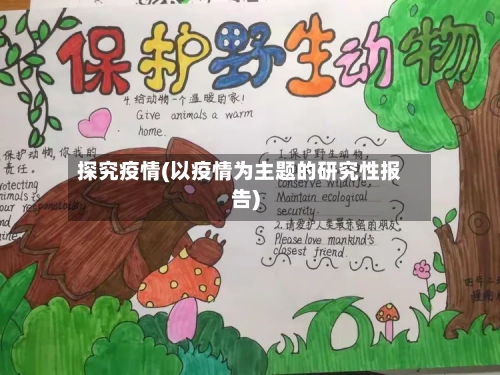 保护野生动物
4.给动物一个温暖的家!
Give animals a warm
home.
保护动物,你我的
责任。
rotecting
nimals is
our responsi
探究疫情(以疫情为主题的研究性报
告)
1.保护野生动物,
conserve wildlife,
Maintain ecological
security.
2.请爱护人类最亲密的朋友
Please love mankind's
closest friend.